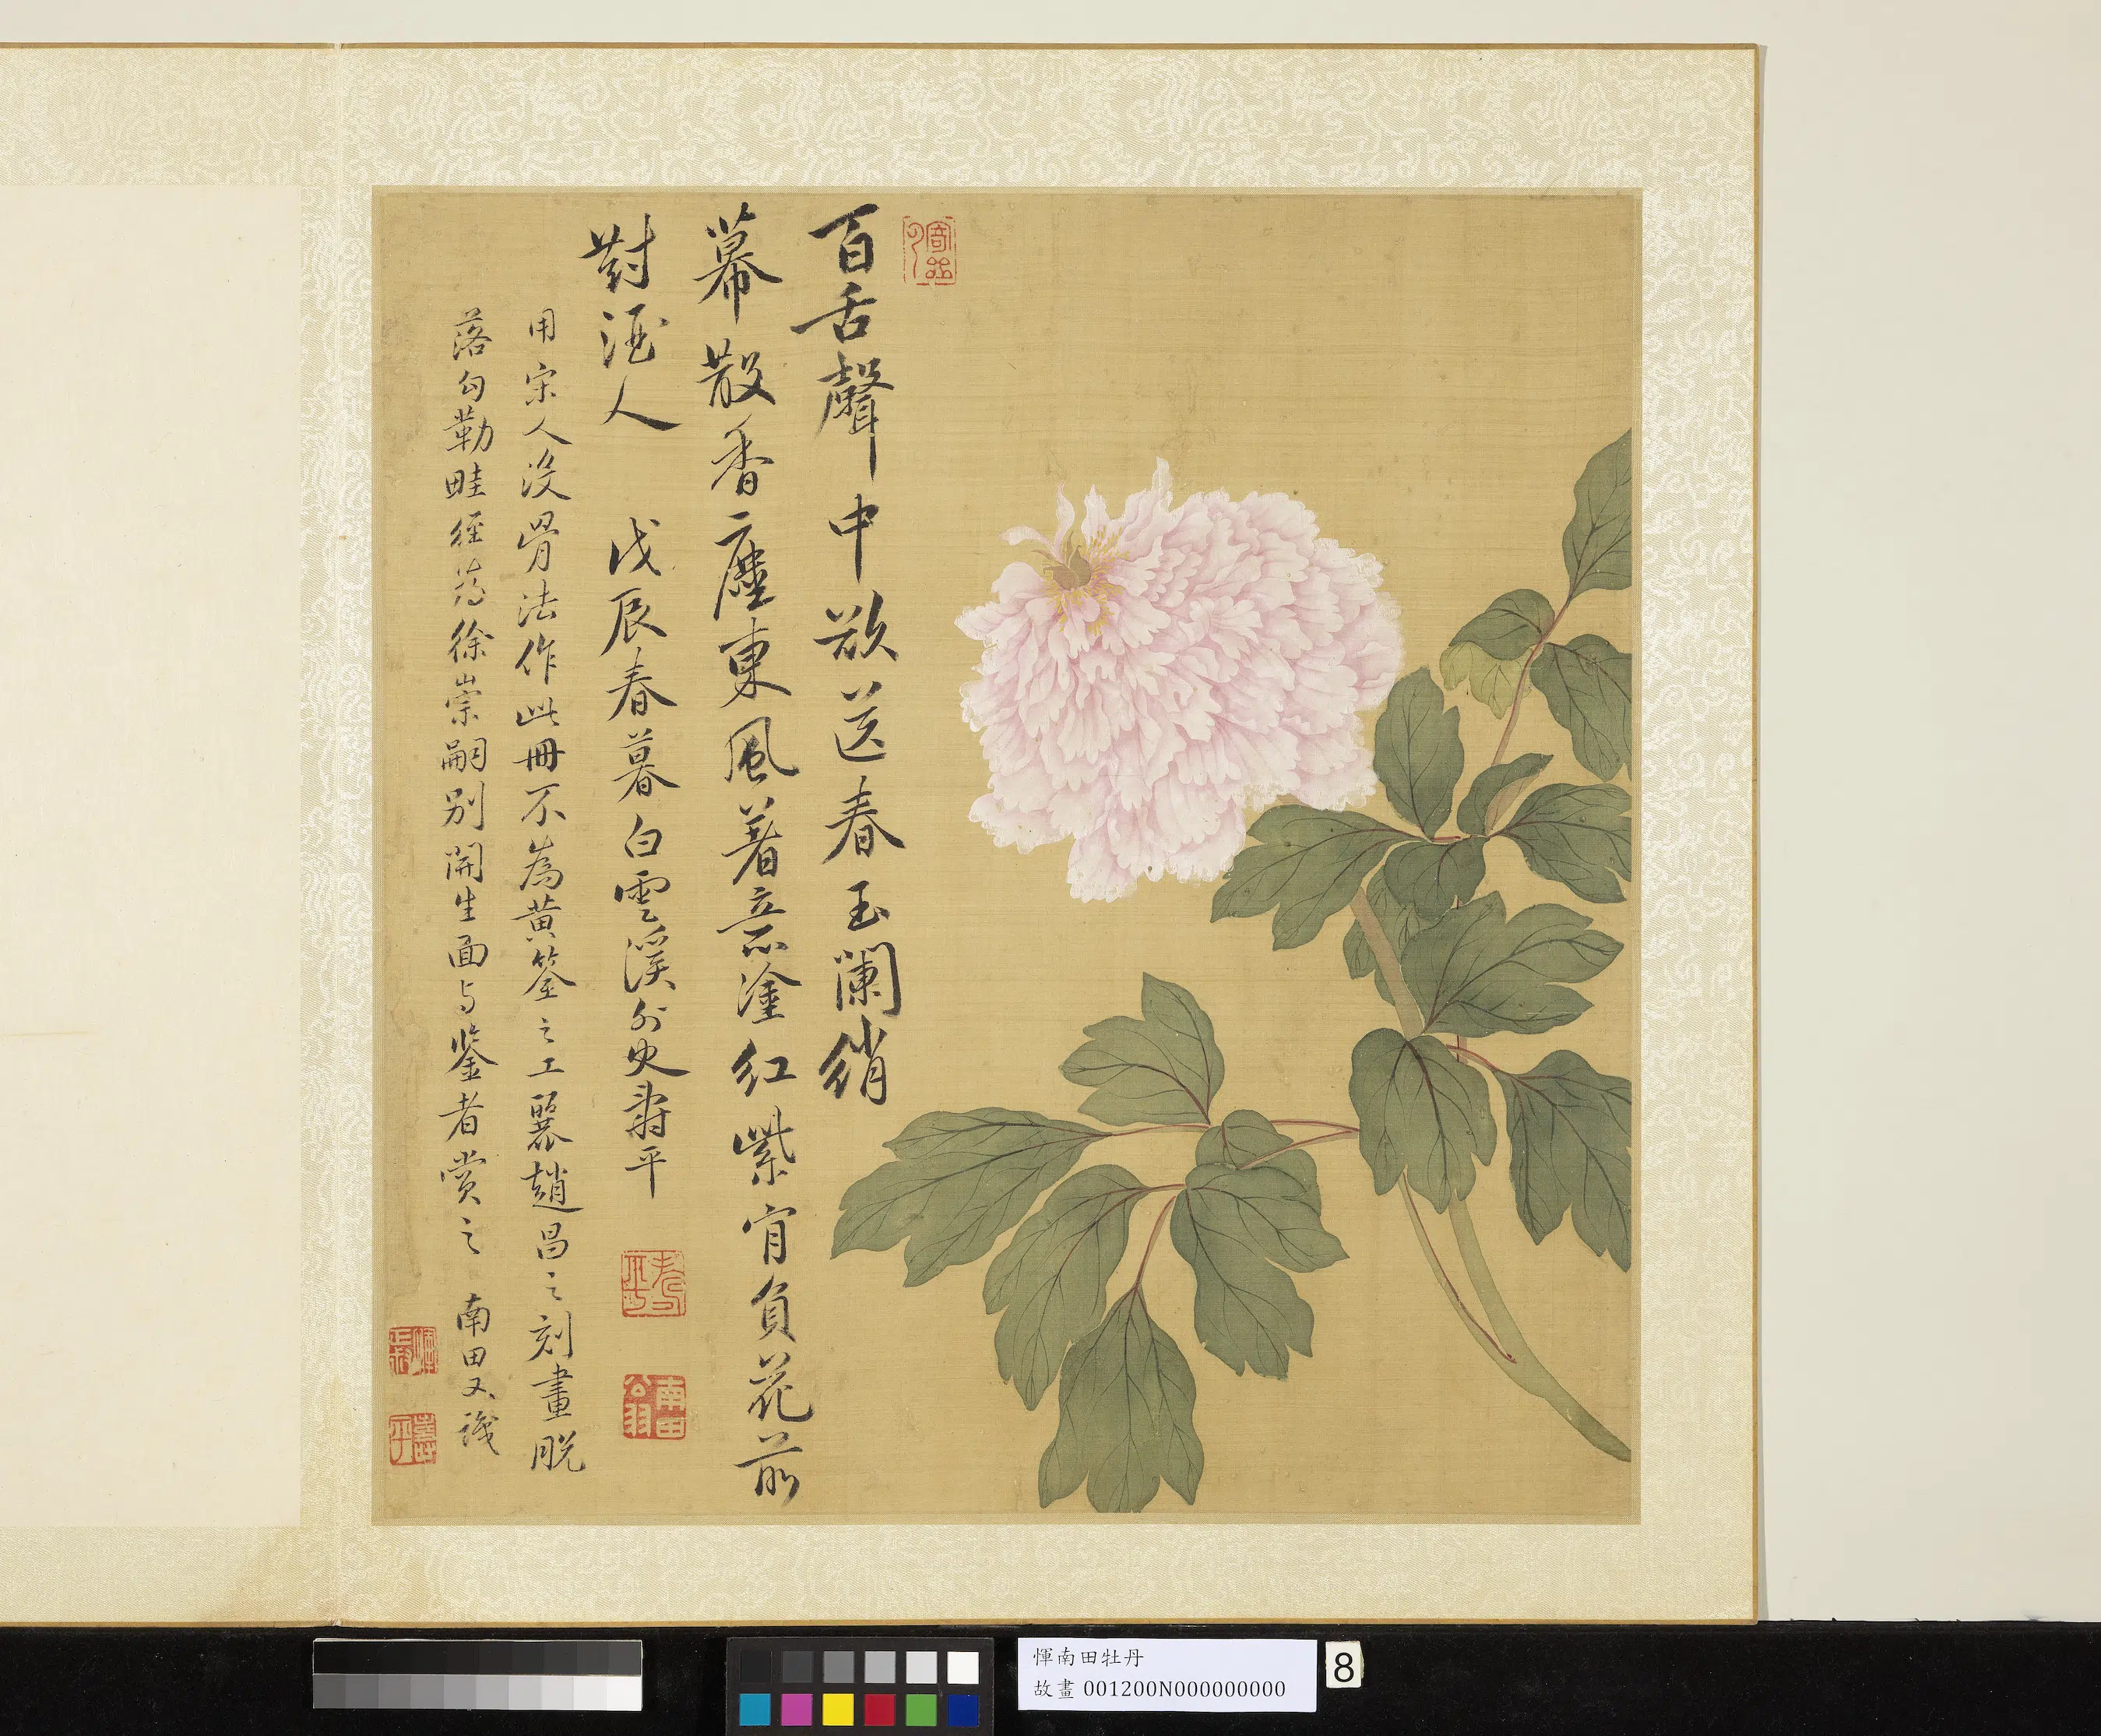 百舌聲中欲送春玉闌綃
幕散香塵東風著意塗紅紫宵負花前
對酒人 戊辰春暮白雲溪外史壽平
用宋人沒骨法作此冊不為黃筌之工麗趙昌之刻畫脫
落勾勒畦徑為徐崇嗣別開生面与鉴者賞之 南田又識
壽平
南田
惲南田牡丹
故畫 001200N000000000
8